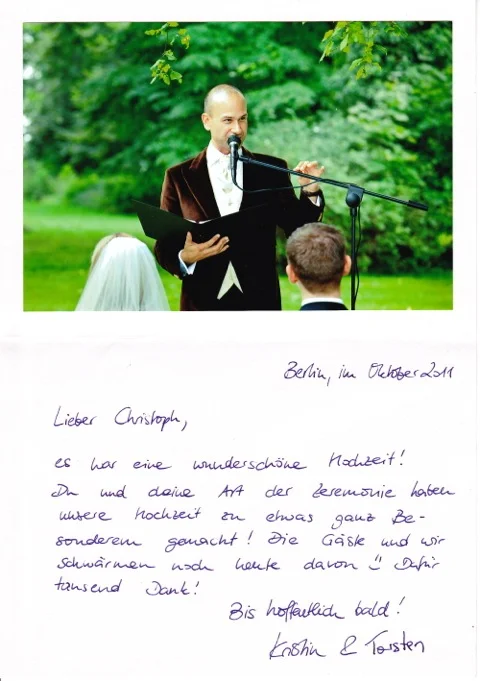 Berlin, im Oktober 2011
Lieber Christoph,
es war eine wunderschöne Hochzeit!
Du und deine Art der Zeremonie haben
unsere Hochzeit zu etwas ganz Be-
sonderem gemacht! Die Gäste und wir
schwärmen noch heute davon ü Dafür
tausend Dank!
Bis hoffentlich bald!
Kristin & Torsten